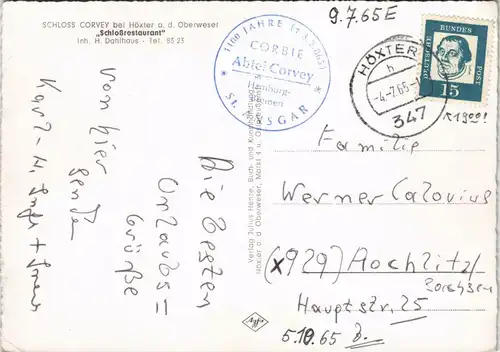 SCHLOSS CORVEY bei Höxter a. d. Oberweser
„Schloßrestaurant"
Inh. H. Dahlhaus · Tel. 85 23
1100 JAHRE
CORBIE
Abtei Corvey
Hamburg-
Bremen
ST. ANSGAR
9.7.65 E
HÖXTER
h
-4.-7.65-
347
DEUTSCHE BUNDESPOST
15
Verlag Julius Henze, Buch- und Kunsthandlung
Höxter a. d. Oberweser, Markt 4 u.
Agfa
Von hier
senden
die besten
Urlaubs=
Grüße
Karl-H.
Familie
Werner Calovius
(x929) Rochlitz/
Sachsen
Hauptstr. 25
5.10.65 B.